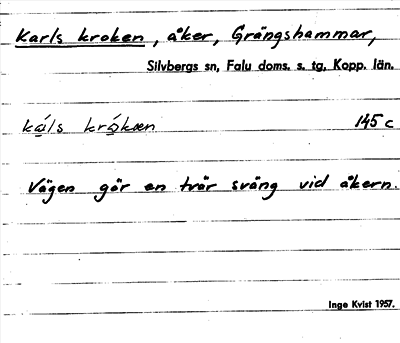 Karls kroken, åker, Grängshammar,
Silvbergs sn, Falu doms. s. tg, Kopp. län.
ká̱ls kró̱kæn 145 c
Vägen gör en tvär sväng vid åkern.
Inge Kvist 1957.